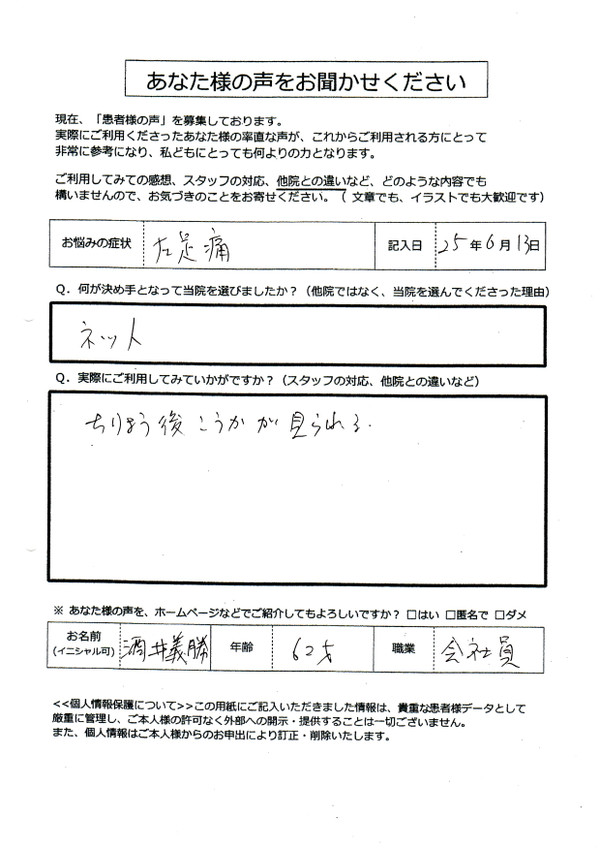 あなた様の声をお聞かせください
現在、「患者様の声」を募集しております。
実際にご利用くださったあなた様の率直な声が、これからご利用される方にとって
非常に参考になり、私どもにとっても何よりの力となります。
ご利用してみての感想、スタッフの対応、他院との違いなど、どのような内容でも
構いませんので、お気づきのことをお寄せください。（ 文章でも、イラストでも大歓迎です）
お悩みの症状 左足痛 記入日 25年6月13日
Q．何が決め手となって当院を選びましたか？（他院ではなく、当院を選んでくださった理由）
ネット
Q．実際にご利用してみていかがですか？（スタッフの対応、他院との違いなど）
ちりょう後こうかが見られる.
※ あなた様の声を、ホームページなどでご紹介してもよろしいですか？ □はい □匿名で □ダメ
お名前 (イニシャル可) 酒井義勝 年齢 62才 職業 会社員
<<個人情報保護について>>この用紙にご記入いただきました情報は、貴重な患者様データとして
厳重に管理し、ご本人様の許可なく外部への開示・提供することは一切ございません。
また、個人情報はご本人様からのお申出により訂正・削除いたします。